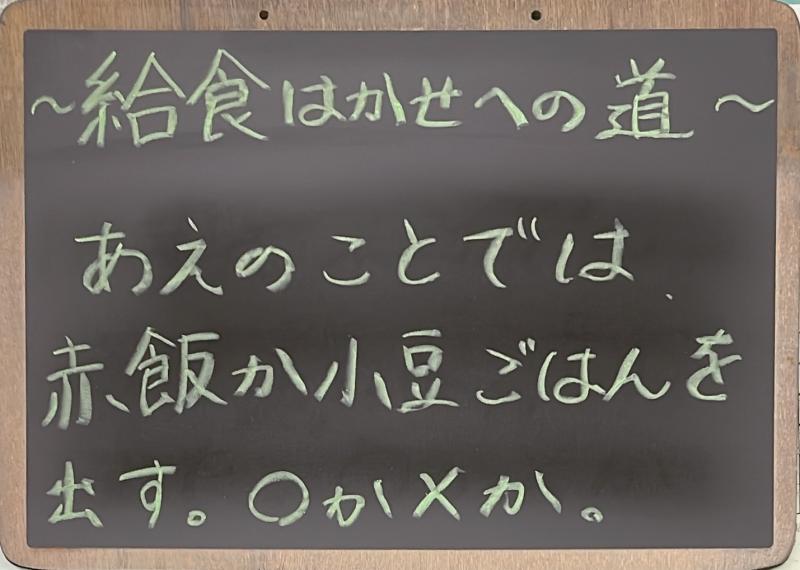 ～給食はかせへの道～
あえのことでは、
赤飯か小豆ごはんを
出す。○か×か。